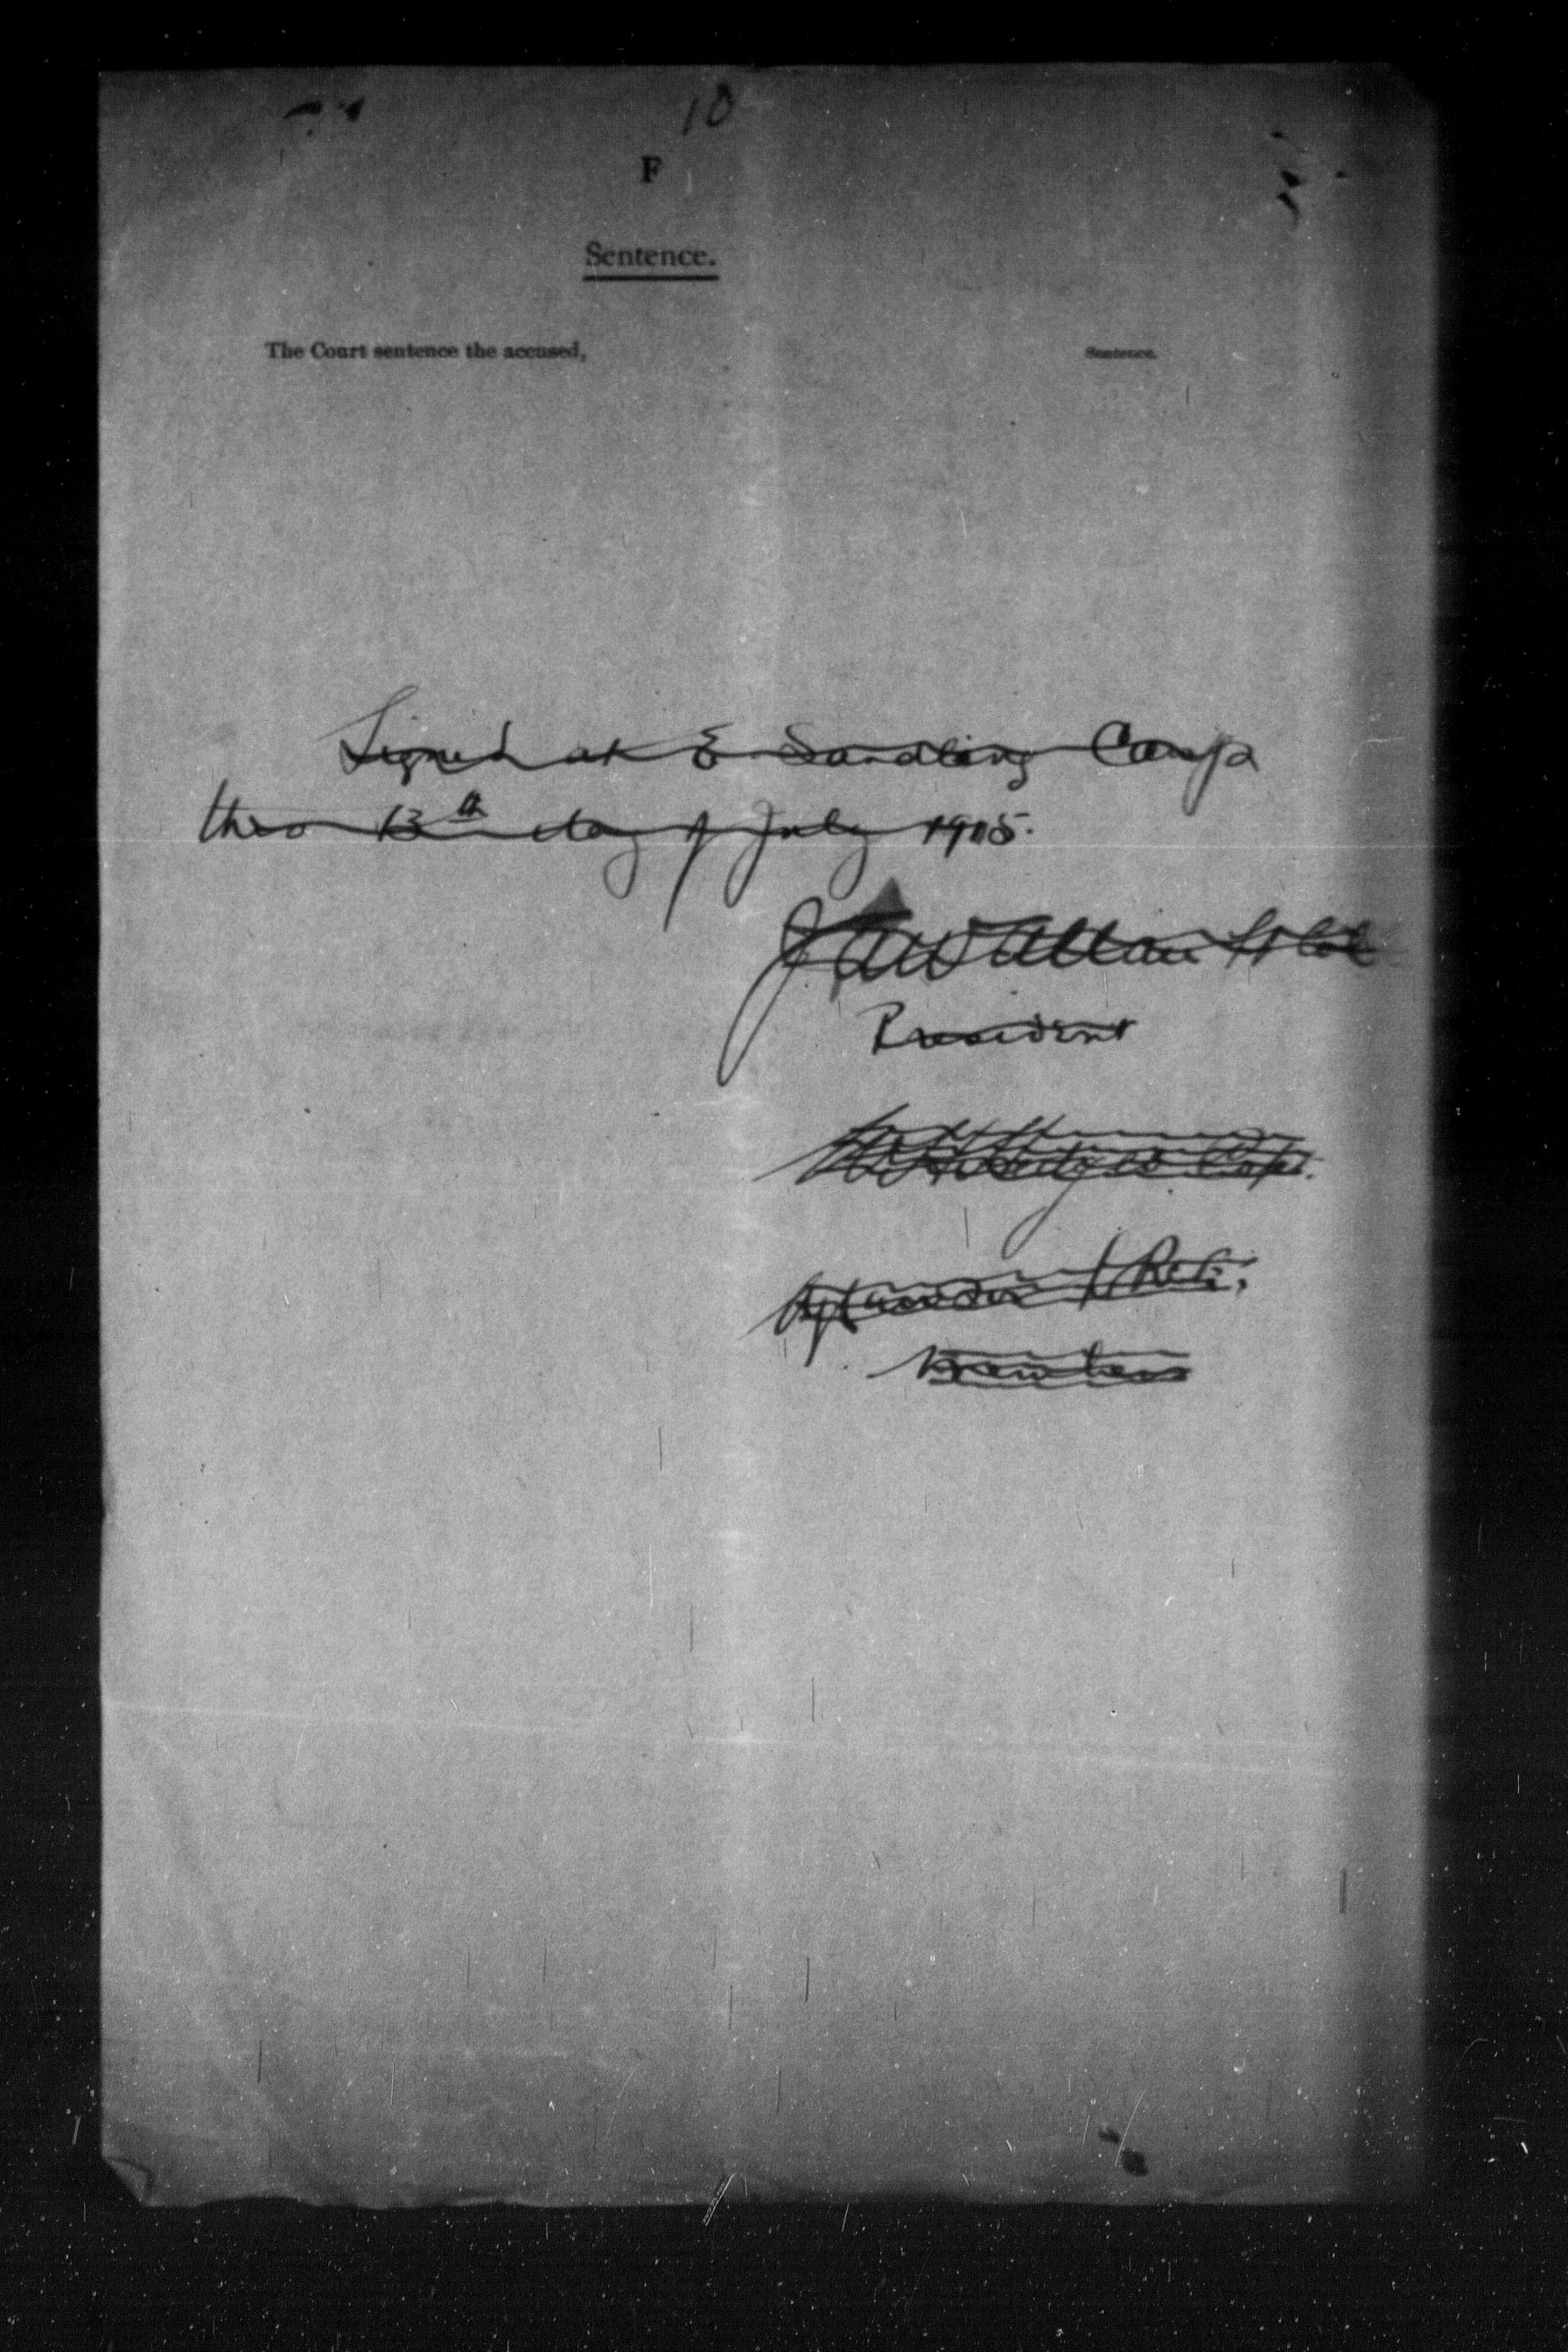 10
F
Sentence.
The Court sentence the accused,
Sentence.
Signed at E Sandling Camp
this 13th day of July 1915.
J A W Allan Lt Col
President
Capt.
Members